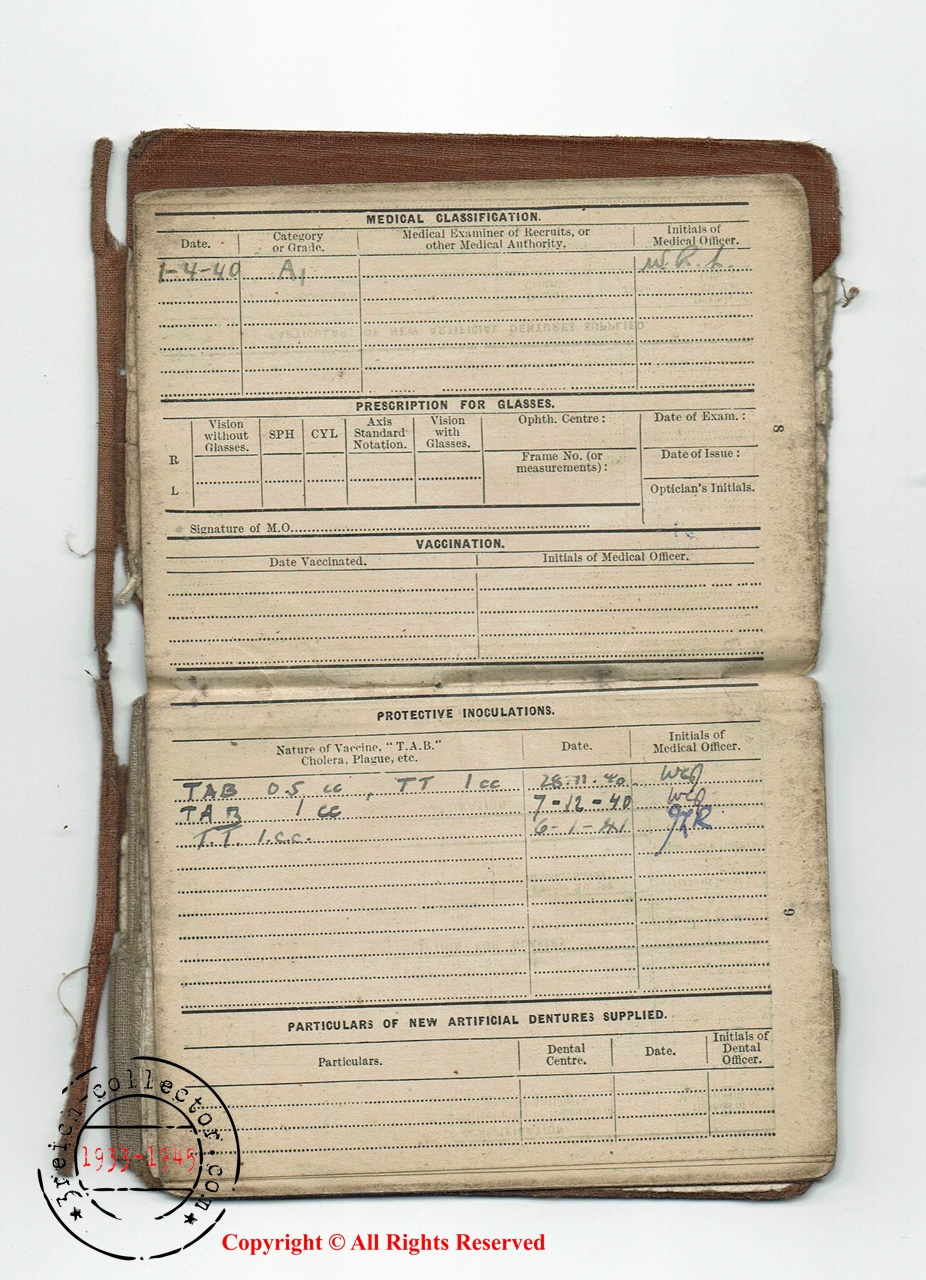 MEDICAL CLASSIFICATION.
Date. Category or Grade. Medical Examiner of Recruits, or other Medical Authority. Initials of Medical Officer.
1-4-40 A1 W.R.L.
PRESCRIPTION FOR GLASSES.
Vision without Glasses. SPH CYL Axis Standard Notation. Vision with Glasses. Ophth. Centre: Date of Exam.:
R
Frame No. (or measurements): Date of Issue:
L
Optician's Initials.
Signature of M.O.
8
VACCINATION.
Date Vaccinated. Initials of Medical Officer.
PROTECTIVE INOCULATIONS.
Nature of Vaccine, "T.A.B." Cholera, Plague, etc. Date. Initials of Medical Officer.
TAB 0.5 cc, TT 1 cc 28.11.40
TAB 1 cc 7-12-40
T.T. 1.c.c. 6-1-41
9
PARTICULARS OF NEW ARTIFICIAL DENTURES SUPPLIED.
Particulars. Dental Centre. Date. Initials of Dental Officer.
3reich-collector.com
1933-1945
Copyright © All Rights Reserved